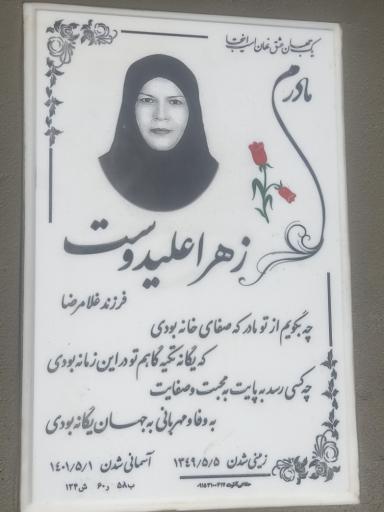 یک جهان عشق نهان است اینجا
مادرم
زهرا علیدوست
فرزند غلامرضا
چه بگویم از تو مادر که صفای خانه بودی
که یگانه تکیه گاهم تو در این زمانه بودی
چه کسی رسد به پایت به محبت و صفایت
به وفا و مهربانی به جهان یگانه بودی
زمینی شدن ۱۳۴۹/۵/۵ آسمانی شدن ۱۴۰۱/۵/۱
ب۵۸ ر۶۰ ش۱۳۴